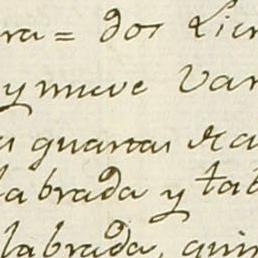 ra = dos Lien
y nueve Var
s quartas de a
labrada y tab
labrada, quin